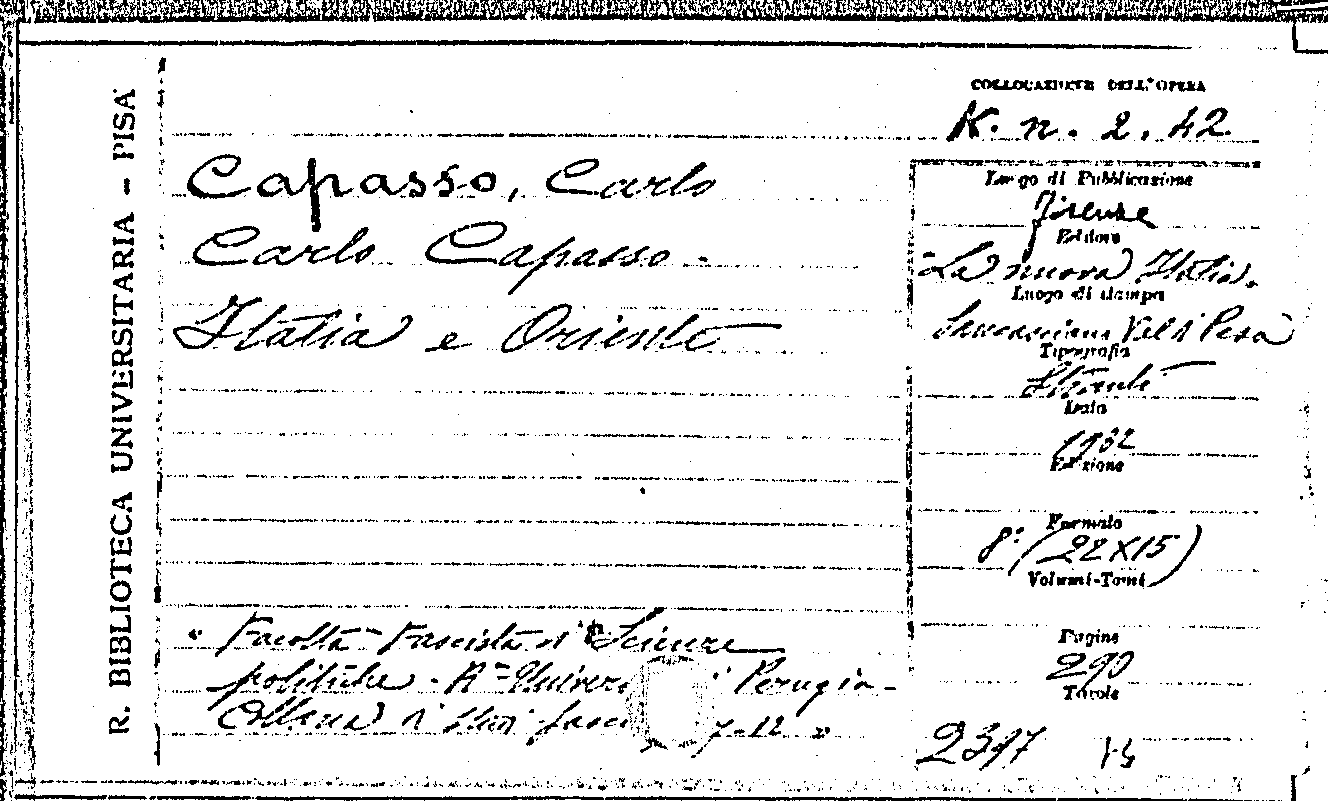 R. BIBLIOTECA UNIVERSITARIA – PISA
COLLOCAZIONE DELL'OPERA
K. n. 2. 42.
Capasso, Carlo
Carlo Capasso.
Italia e Oriente
Luogo di Pubblicazione
Firenze
Editore
La nuova Italia.
Luogo di stampa
Val di Pesa
Tipografia
Stianti
Data
1932
Edizione
Formato
8° (22X15)
Volumi-Tomi
Pagine
290
Tavole
« Facoltà Fascista di Scienze
politiche - Rª Univers Perugia -
Collana di Studi fasci 12 »